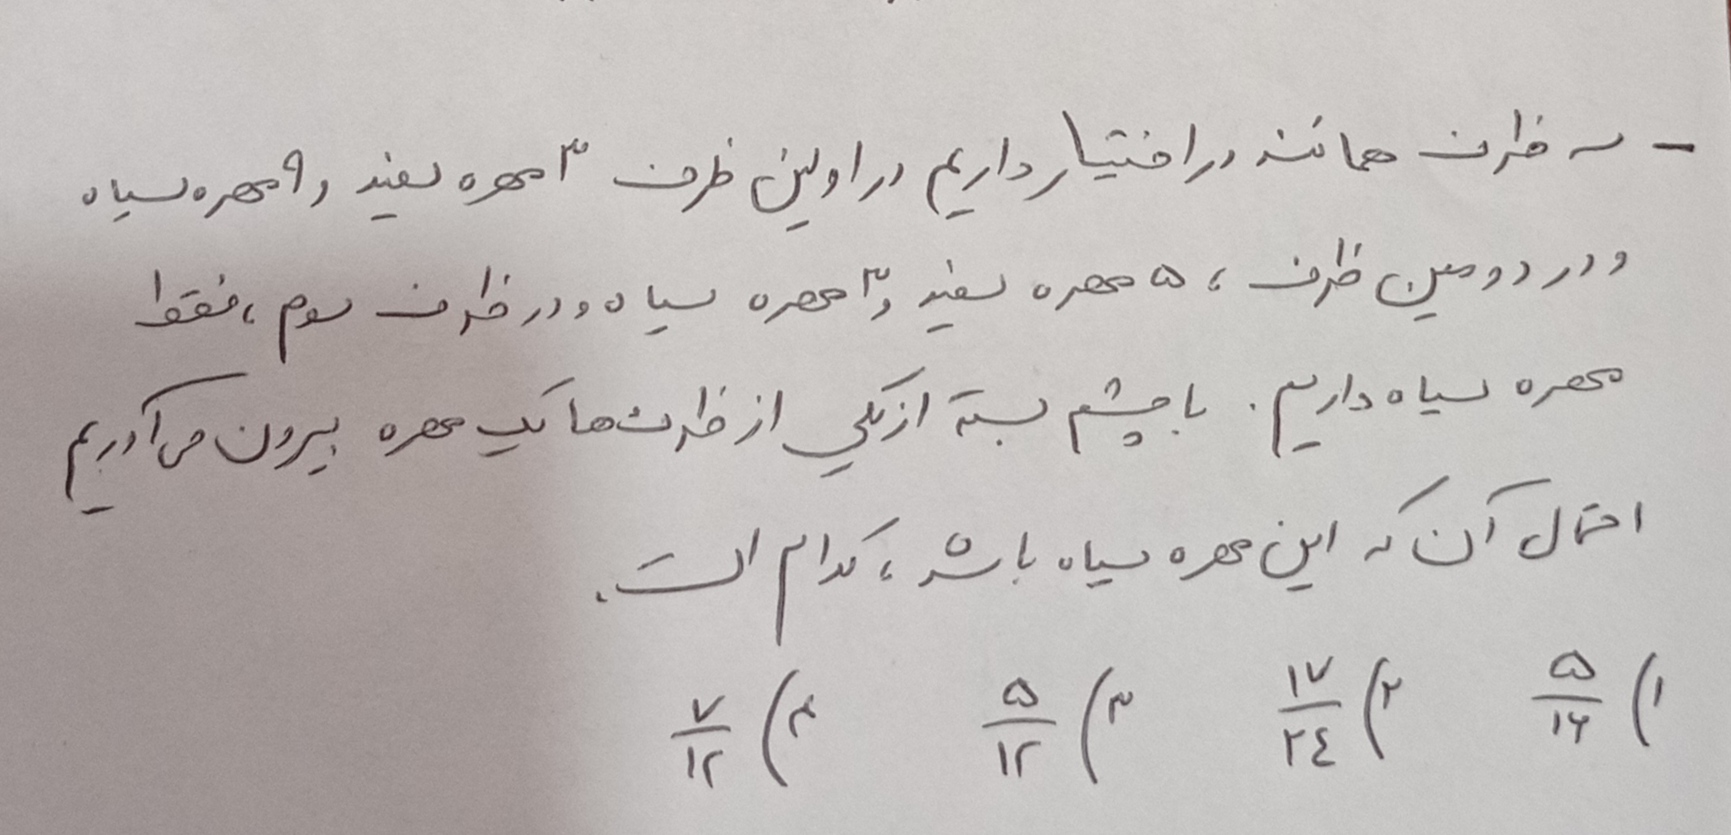 - سه ظرف همانند در اختیار داریم در اولین ظرف ۳ مهره سفید و ۹ مهره سیاه
و در دومین ظرف ، ۵ مهره سفید و ۳ مهره سیاه و در ظرف سوم ، فقط
مهره سیاه داریم . با چشم بسته از یکی از ظرف‌ها یک مهره بیرون می‌آوریم
احتمال آن که این مهره سیاه باشد ، کدام است .
۱) ۵/۱۶ ۲) ۱۷/۲۴ ۳) ۵/۱۲ ۴) ۷/۱۲